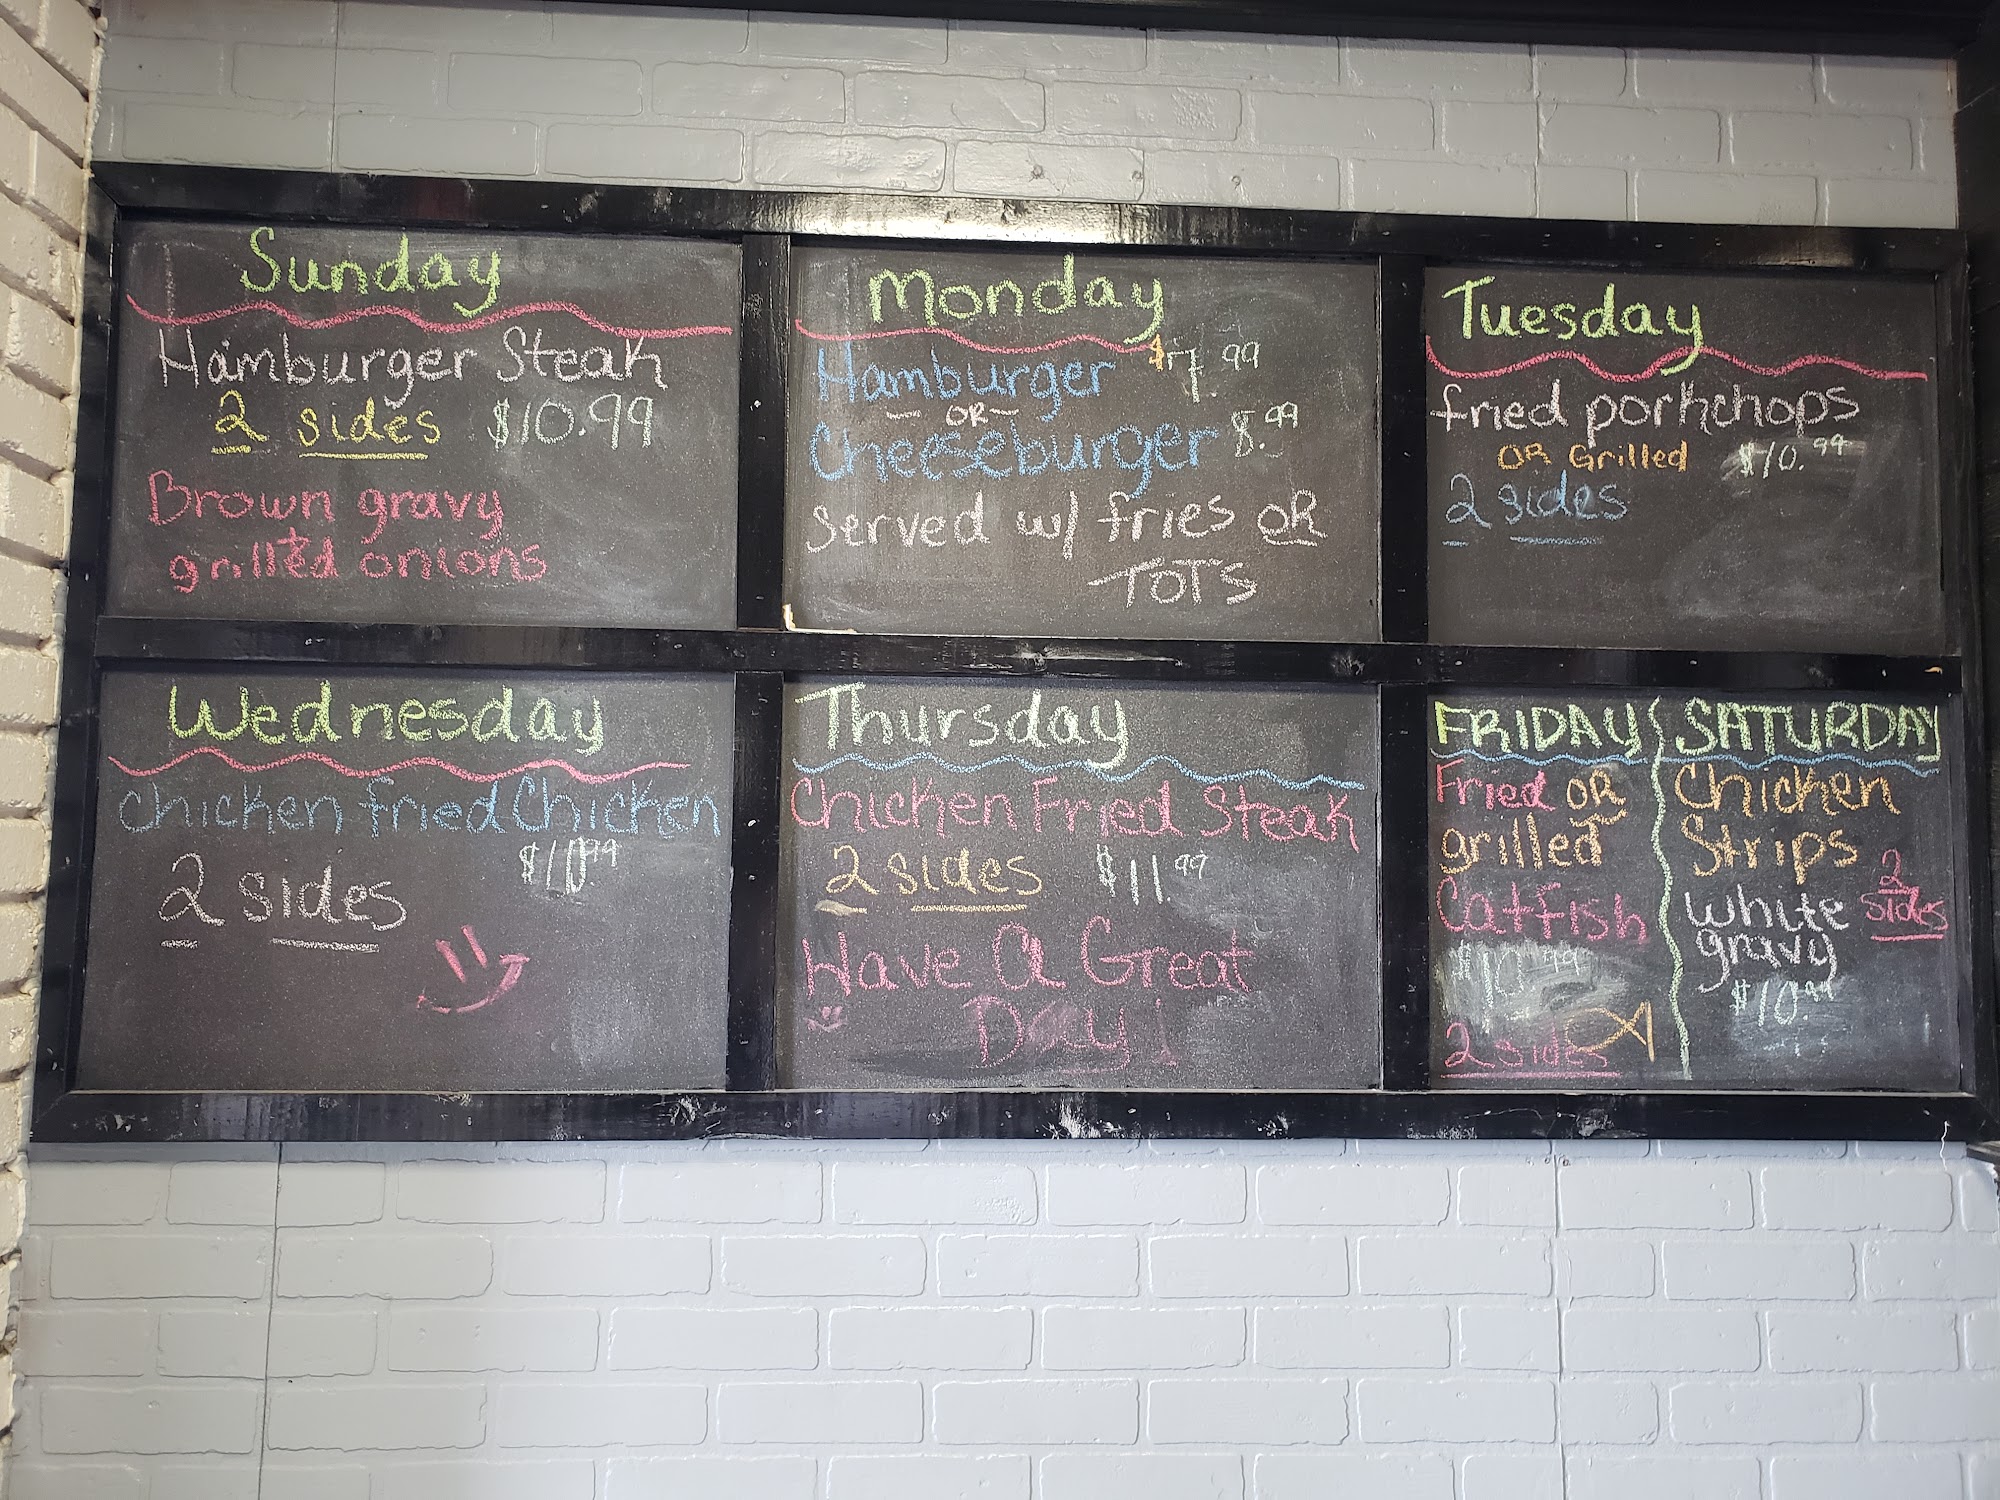 Sunday
Hamburger Steak
2 sides $10.99
Brown gravy
+
grilled onions
Monday
Hamburger $7.99
- OR -
Cheeseburger 8.99
served w/ fries OR
TOTS
Tuesday
fried porkchops
OR Grilled $10.99
2 sides
Wednesday
Chicken fried Chicken
$10.99
2 sides
Thursday
Chicken Fried Steak
2 sides $11.99
Have A Great
Day!
FRIDAY
Fried OR
grilled
Catfish
$10.99
2 sides
SATURDAY
Chicken
Strips
2
sides
white
gravy
$10.99